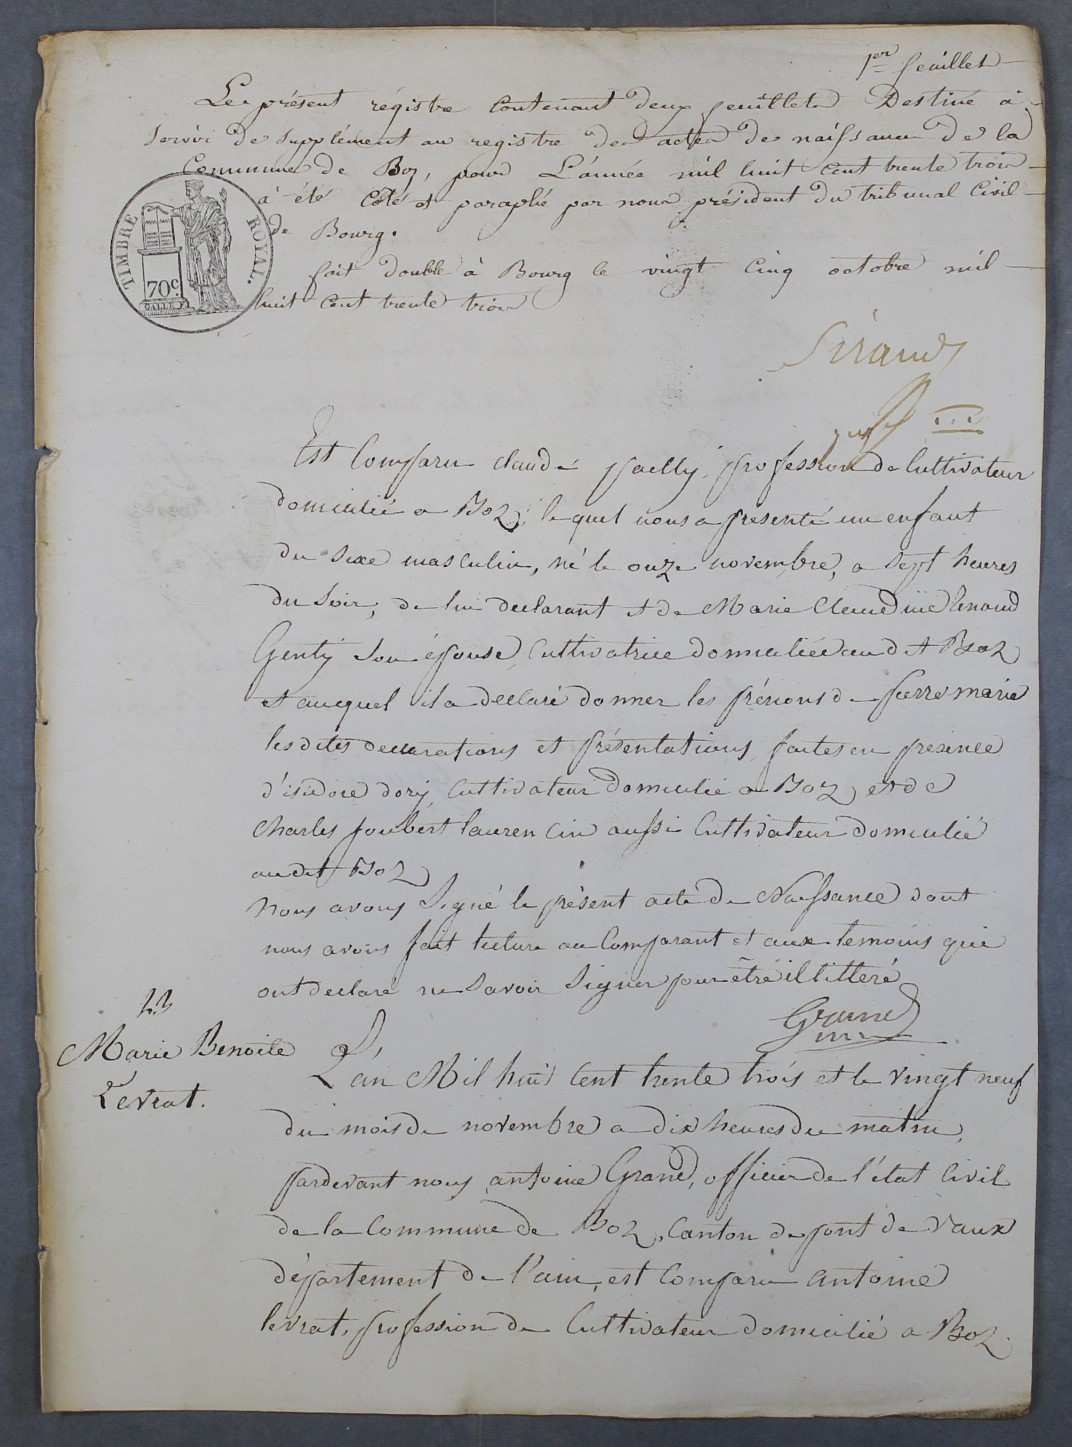 1er feuillet
Le présent régistre Contenant deux feuillets Destiné à
servir de supplément au registre des actes de naissance de la
Commune de Boz, pour L'année mil huit cent trente trois
à été Côté et paraphé par nous président du tribunal Civil
de Bourg.
fait double à Bourg le vingt cinq octobre mil
huit cent trente trois
TIMBRE ROYAL.
70c.
Est Comparu claude pailly, profession de Cultivateur
domicilié a Boz, lequel nous a presenté un enfant
du sexe masculin, né le onze novembre, a sept heures
du Soir, de lui declarant et de Marie Claudine Renaud
Genty Son épouse, Cultivatrice domiciliée audit Boz
et auquel il a declaré donner les prénoms de pierre marie
lesdites declarations et présentations, faites en presence
d'isidore dory, Cultivateur domicilié a Boz, et de
Charles joubert laurencin aussi Cultivateur domicilié
audit Boz
Nous avons Signé le présent acte de Naissance dont
nous avons fait lecture au Comparant et aux temoins qui
ont declaré ne Savoir Signer pour être illitteré
Grand
Marie Benoite
Levrat.
L'an Mil huit Cent trente trois et le vingt neuf
du mois de novembre a dix heures du matin,
pardevant nous antoine Grand, officier de l'état Civil
de la Commune de Boz, Canton de pont de vaux
département de l'ain, est Comparu antoine
levrat, profession de Cultivateur domicilié a Boz